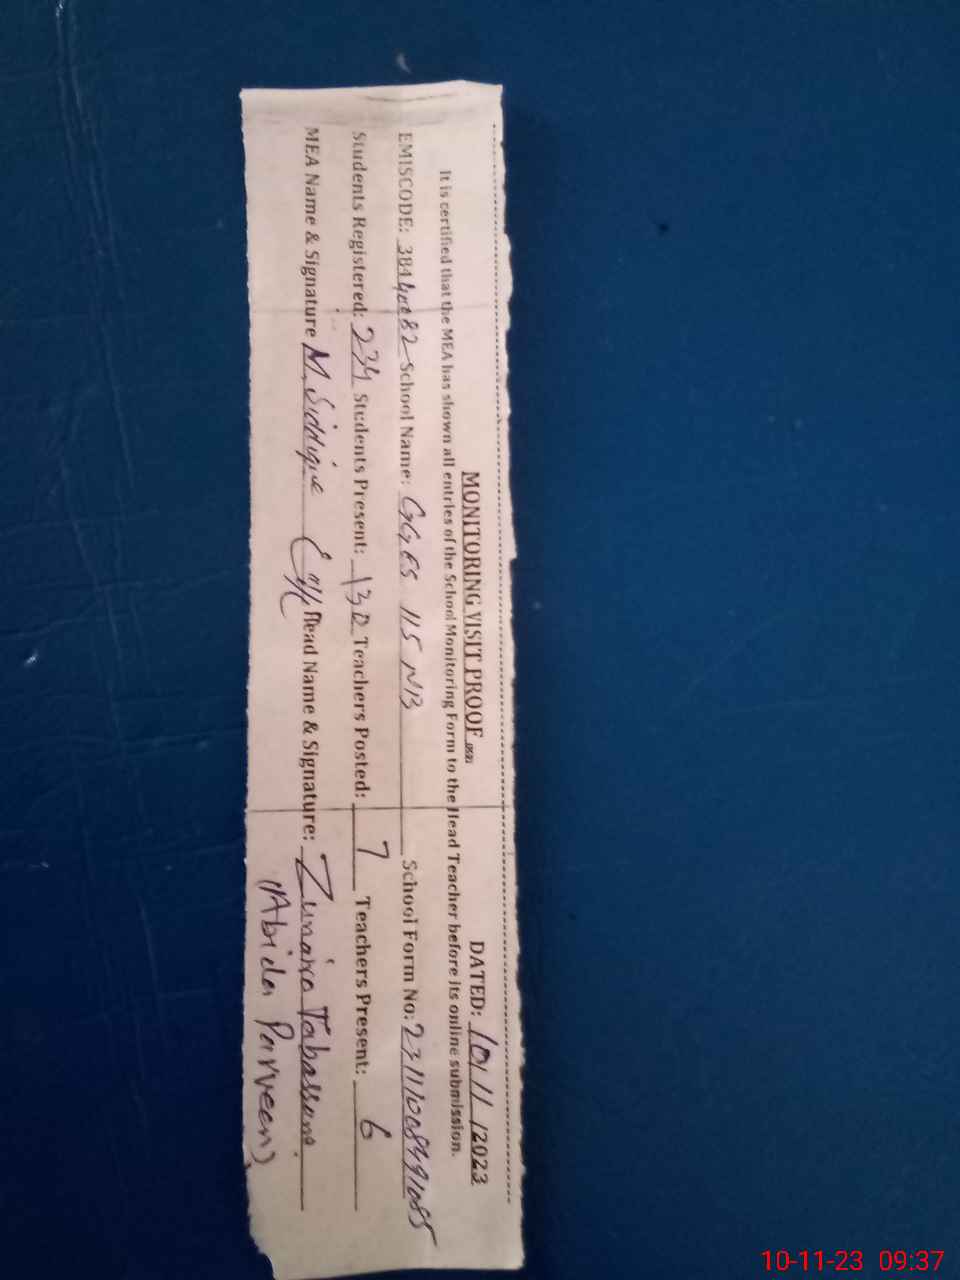 MONITORING VISIT PROOF DATED: 10/11/2023
It is certified that the MEA has shown all entries of the School Monitoring Form to the Head Teacher before its online submission.
EMISCODE: School Name: GGES 115 NB School Form No:
Students Registered: 234 Students Present: 130 Teachers Posted: 7 Teachers Present: 6
MEA Name & Signature M. Siddique Head Name & Signature: Tabassum
(Abida Parveen)
10-11-23 09:37